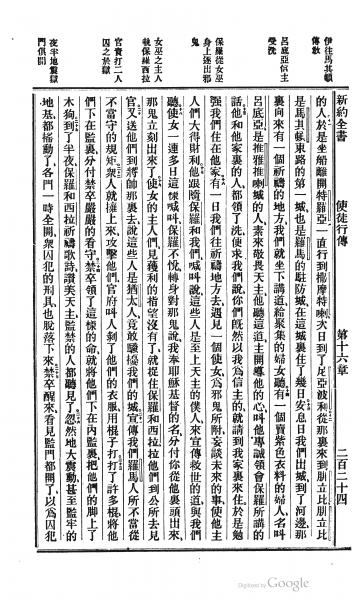 新約全書 使徒行傳 第十六章 二百二十四
伊往馬其頓
傳敎
呂底亞信主
受洗
保羅從女巫
身上逐出邪
鬼
女巫之主人
執保羅西拉
官責打二人
囚之於獄
夜半地震獄
門俱開
的人於是坐船離開特羅亞一直行到撒摩特喇次日到了尼亞波利從那裏來到腓立比腓立比
是馬其頓東路的第一城也是羅馬的駐防城在這城裏住了幾日安息日我們出城到了河邊那
裏向來有一個祈禱的地方我們就坐下講道給聚集的婦女聽有一個賣紫色衣料的婦人名叫
呂底亞是推雅推喇城的人素來敬畏天主他聽這道主開導他的心叫他專誠領會保羅所講的
話他和他家裏的人都領了洗便求我們說你們旣然以我爲信主的就請到我家裏來住於是勉
强我們住在他家有一日我們往祈禱地方去遇見一個使女爲邪鬼所附妄談未來的事使他主
人們大得財利他跟隨保羅和我們喊叫說這些人是至上天主的僕人來宣傳救世的道與我們
聽使女一連多日這樣喊叫保羅不悅轉身對那鬼說我奉耶穌基督的名分付你從他裏頭出來
那鬼立刻出來了使女的主人們見獲利的指望沒有了就捉住保羅和西拉拉他們到公所去見
官又送他們到將帥那裏去說這些人是猶太人竟敢騷擾我們的城宣傳我們羅馬人所不當從
不當守的規矩衆人就擁上來攻擊他們官府叫人剝了他們的衣服用棍子打打了許多棍將他
們下在監裏分付禁卒嚴嚴的看守禁卒領了這樣的命就將他們下在內監裏把他們的脚上了
木狗到了半夜保羅和西拉祈禱歌詩讚美天主監禁的人都聽見了忽然地大震動甚至監牢的
地基都搖動了各門一時全開衆囚犯的刑具也脫落下來禁卒醒來看見監門都開了以爲囚犯
Digitized by Google